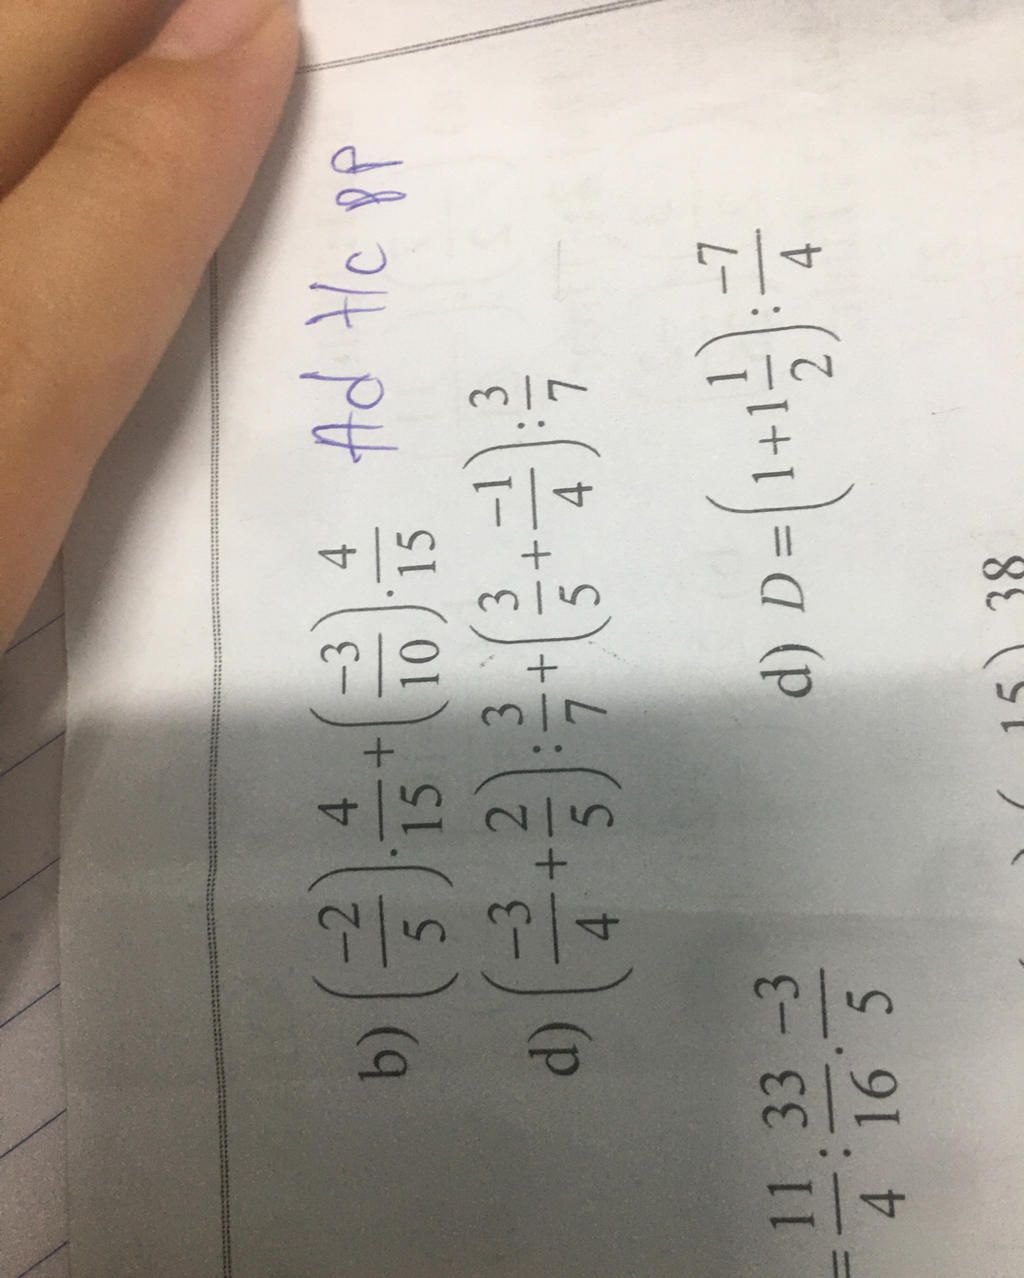 b) $\left(\frac{-2}{5}\right).\frac{4}{15}+\left(\frac{-3}{10}\right).\frac{4}{15}$ Ad t/c pp
d) $\left(\frac{-3}{4}+\frac{2}{5}\right):\frac{3}{7}+\left(\frac{3}{5}+\frac{-1}{4}\right):\frac{3}{7}$
$=\frac{11}{4}:\frac{33}{16}.\frac{-3}{5}$ d) $D=\left(1+1\frac{1}{2}\right):\frac{-7}{4}$
15) 38